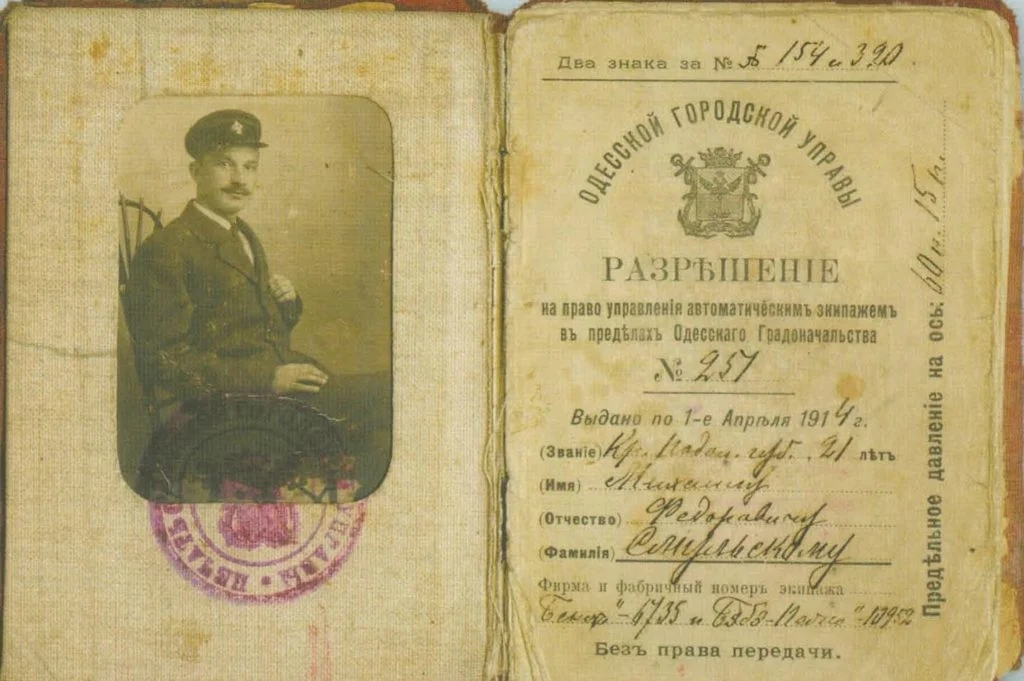 ПЕЧАТЬ
УПРАВЫ
Два знака за № 154 и 390.
ОДЕССКОЙ ГОРОДСКОЙ УПРАВЫ
РАЗРѢШЕНІЕ
на право управленія автоматическимъ экипажемъ
въ предѣлахъ Одесскаго Градоначальства
№ 251
Выдано по 1-е Апрѣля 1914 г.
(Званіе) Кр. Подол. губ. 21 лѣтъ
(Имя) Михаилу
(Отчество) Федоровичу
(Фамилія)
Фирма и фабричный номеръ экипажа
Бенц" - 6735 и 10952
Безъ права передачи.
Предѣльное давленіе на ось: 60 п. 15